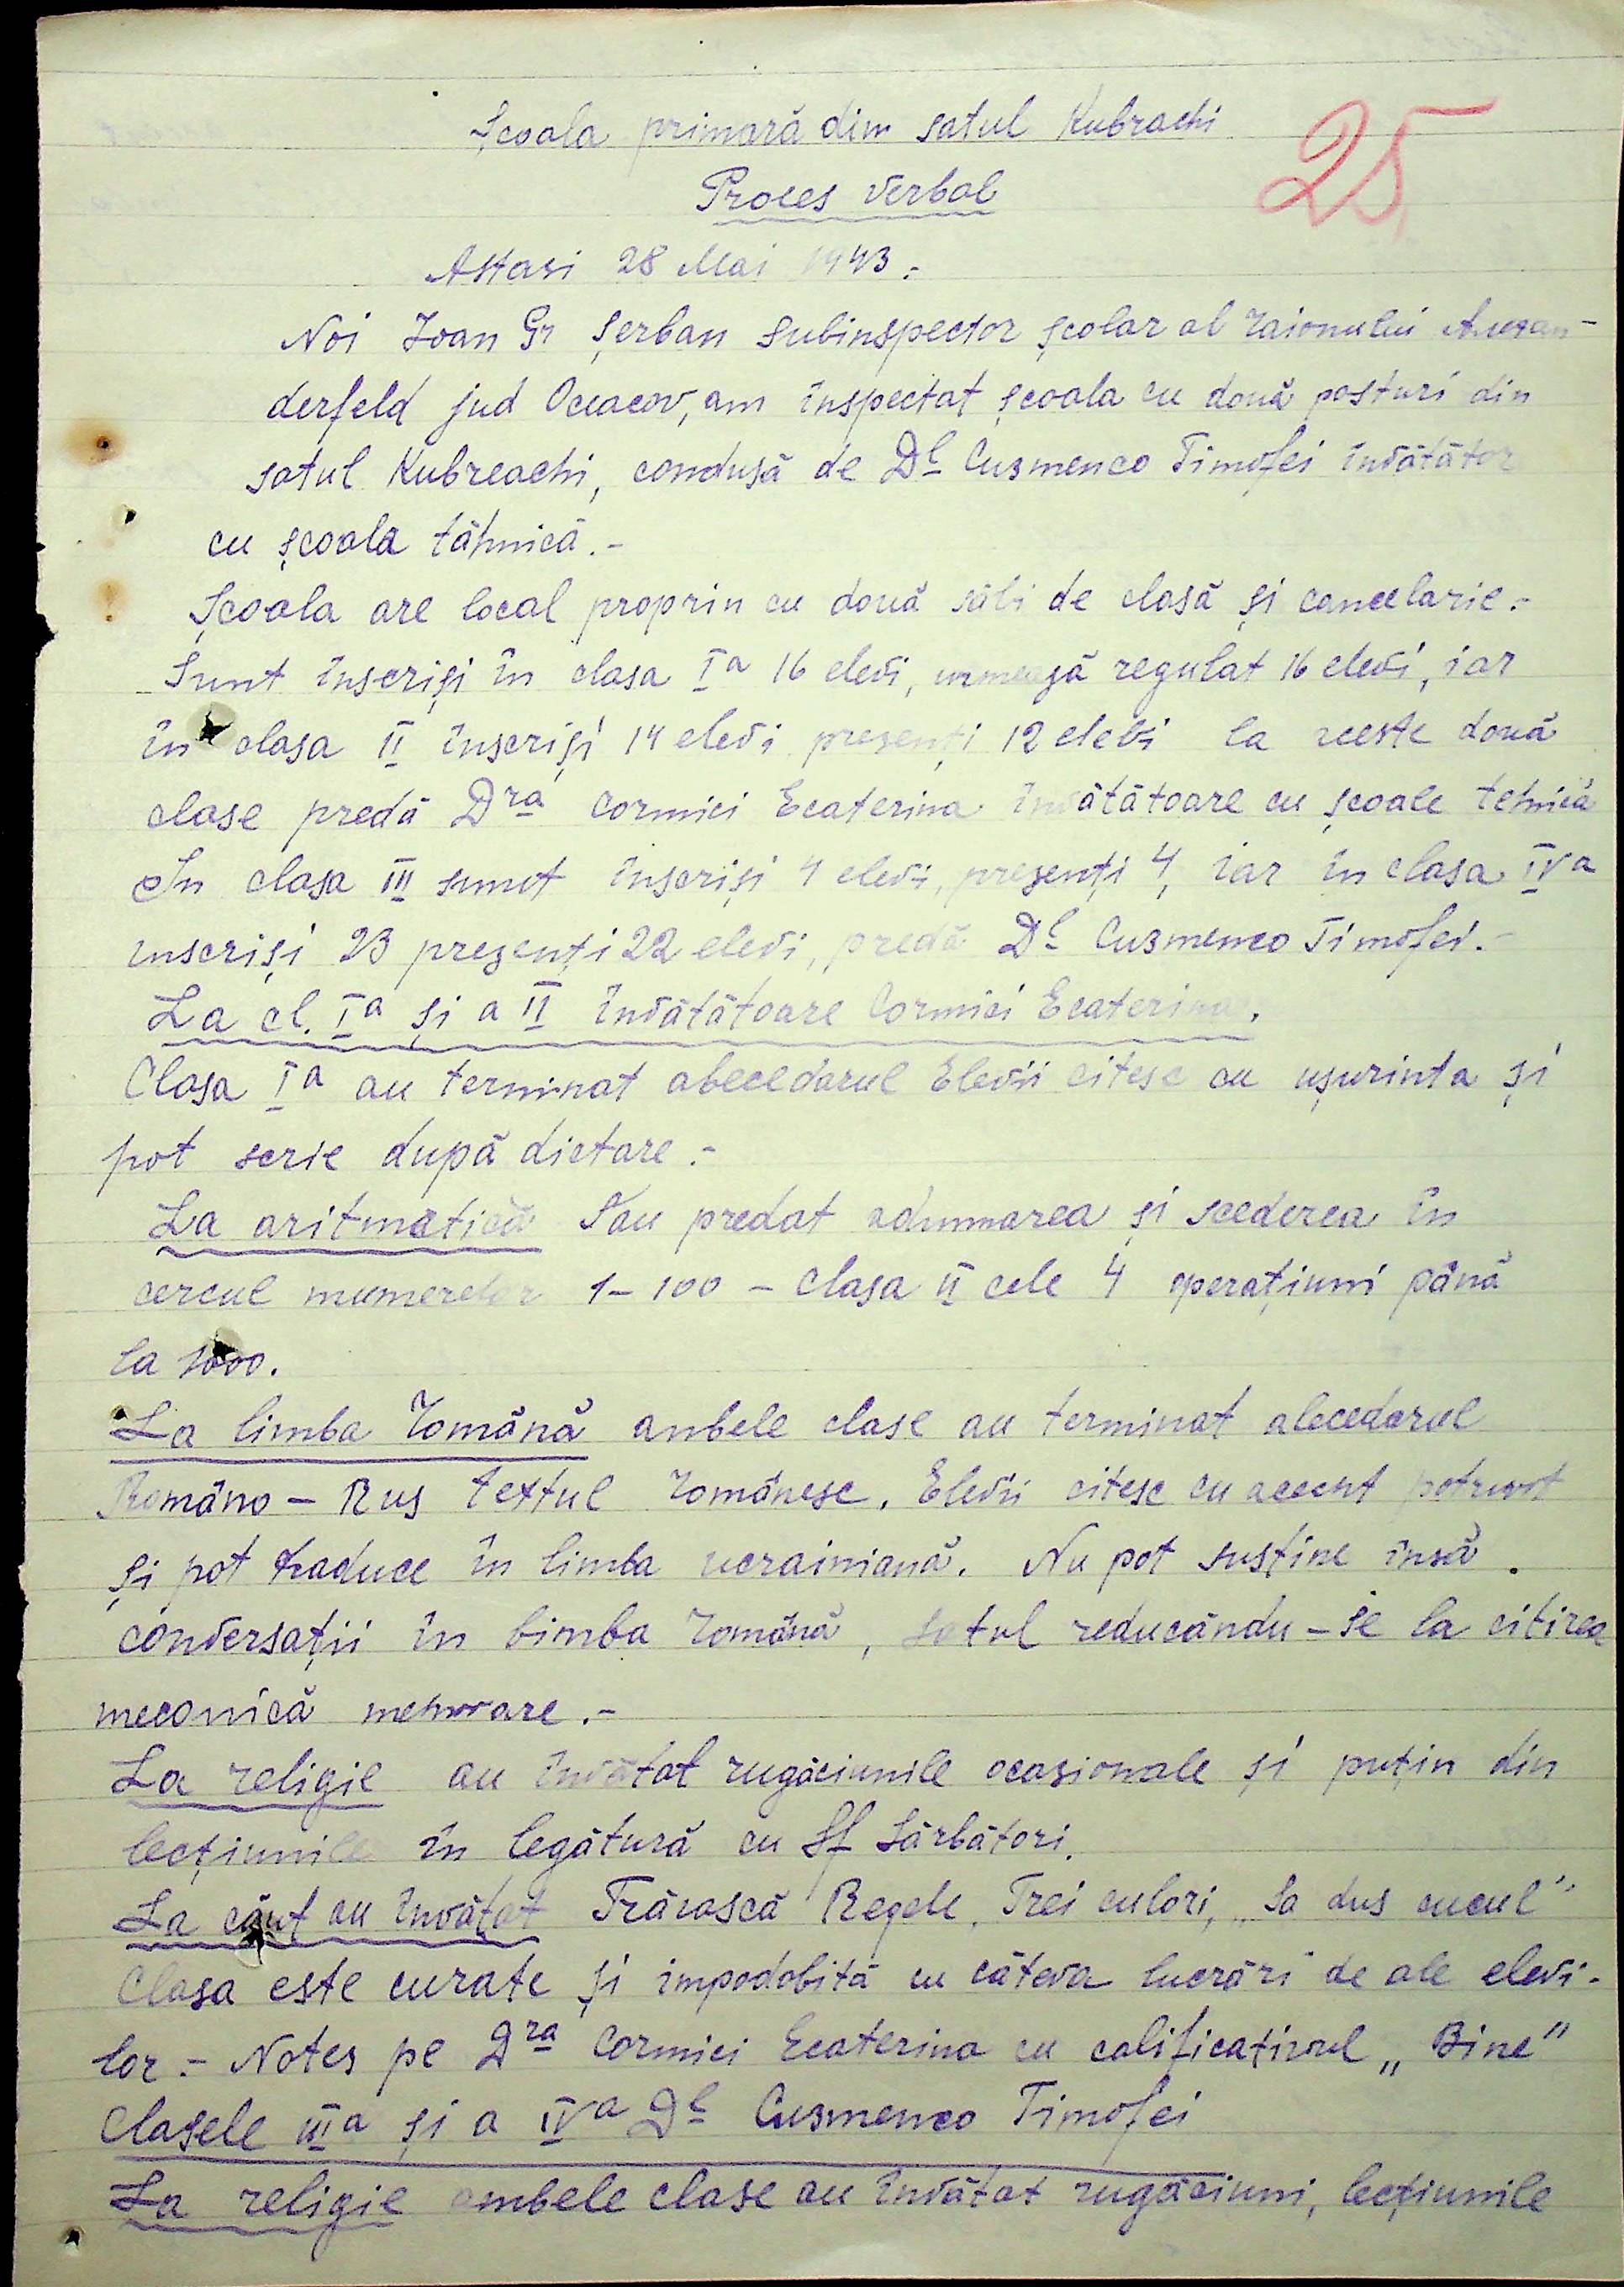 Școala primară dim satul Kubrachi
25
Proces verbal
Astasi 28 Mai 1943.-
Noi Ioan Gr Șerban subinspector școlar al raionului
derfeld jud Oceacov, am inspectat școala cu două posturi din
satul Kubreachi, condusă de Dl Cusmenco Timofei învătător
cu școala tăhnică.-
Școala are local propriu cu două săli de clasă și cancelarie.-
Sunt înscriși în clasa Ia 16 elevi, urmează regulat 16 elevi, iar
în clasa II înscriși 14 elevi prezenți 12 elevi la aceste două
clase predă Dra Cormici Ecaterina învătătoare cu școale tehnică
In clasa III sunt înscriși 4 elevi, prezenți 4, iar în clasa IVa
inscriși 23 prezenți 22 elevi, predă Dl Cuzmenco Timofei.-
La cl. Ia și a II învătătoare Cormici Ecaterina.
Clasa Ia au terminat abecedarul Elevii citesc cu ușurinta și
pot scrie după dictare.-
La aritmatică Sau predat adunarea și scederea în
cercul numerelor 1-100 - Clasa II cele 4 operațiuni până
la 1000.
La limba română ambele clase au terminat abecedarul
Româno - Rus textul românesc. Elevii citesc cu accent potrivit
și pot traduce în limba ucrainiană. Nu pot susține însă
conversații în limba română, totul reducându-se la citirea
meconică memorare.-
La religie au învătat rugăciunile ocasionale și puțin din
lecțiunile în legătură cu Sf Sărbători.
La cânt au învățat Trăiască Regele. Trei culori, „Sa dus cucul"
Clasa este curate și impodobită cu câteva lucrări de ale elevi-
lor.- Notes pe Dra Cormici Ecaterina cu calificativul „Bine"
Clasele IIIa și a IVa Dl Cusmenco Timofei
La religie ambele clase au învătat rugăciuni, lecțiunile